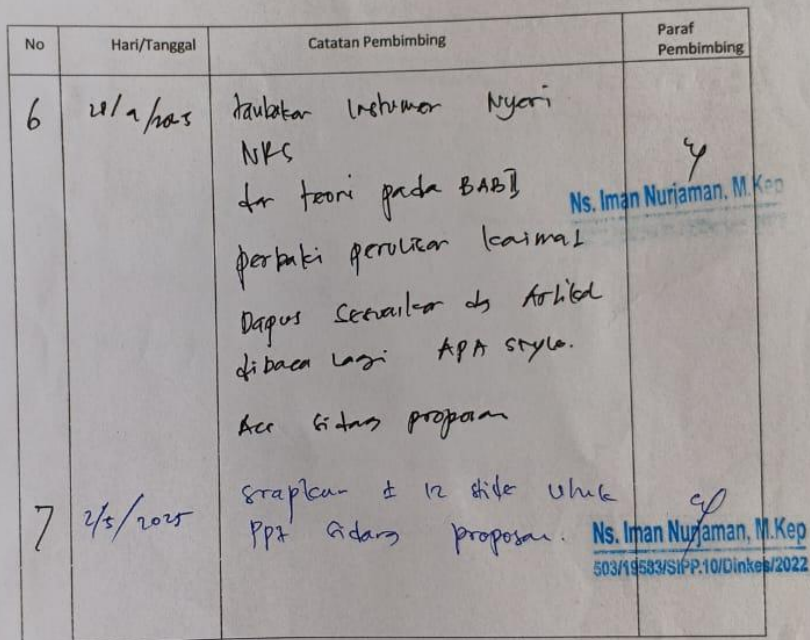 No Hari/Tanggal Catatan Pembimbing Paraf Pembimbing
6 Instrumen Nyeri
NRS
dan teori pada BAB II
perbaiki penulisan kaimat
Dapus Sesuaikan dg Artikel
dibaca lagi APA style.
Acc Sidang proposan
Ns. Iman Nurjaman, M.Kep
7 2/5/2025 Siapkan ± 12 slide Untuk
PPt Sidang proposan.
Ns. Iman Nurjaman, M.Kep
503/19583/SIPP.10/Dinkes/2022